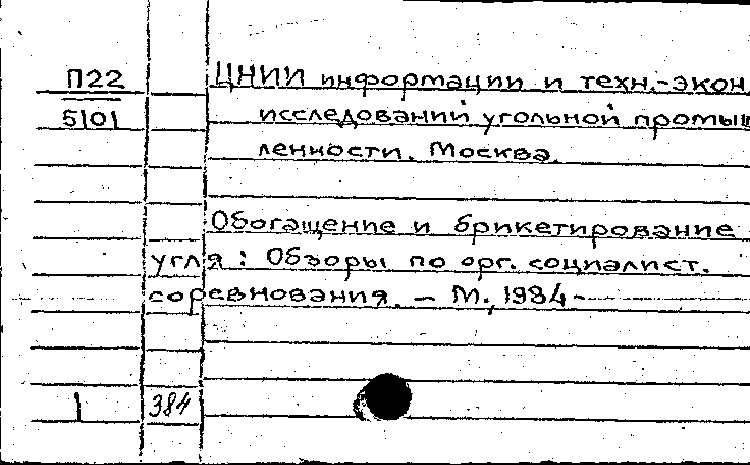 П22
5101
ЦНИИ информации и техн.-экон.
исследований угольной промыш
ленности. Москва.
Обогащение и брикетирование
угля : Обзоры по орг. социалист.
соревнования. – М., 1984-
1
384